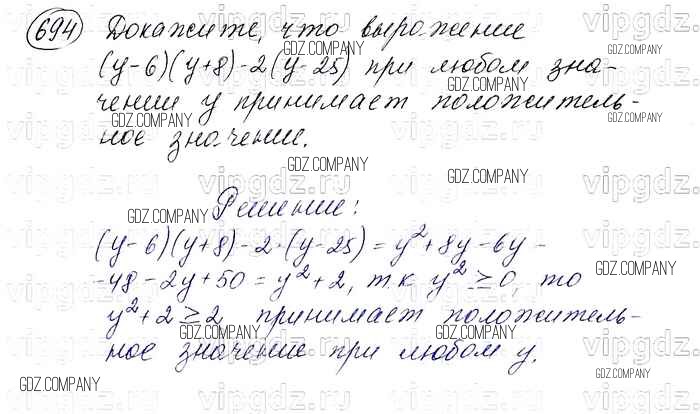 694 Докажите, что выражение
(y-6)(y+8)-2(y-25) при любом зна-
чении y принимает положитель-
ное значение.
Решение:
(y-6)(y+8)-2·(y-25)=y²+8y-6y-
-48-2y+50=y²+2, т.к y²≥0, то
y²+2≥2 принимает положитель-
ное значение при любом y.
vipgdz.ru
GDZ.COMPANY